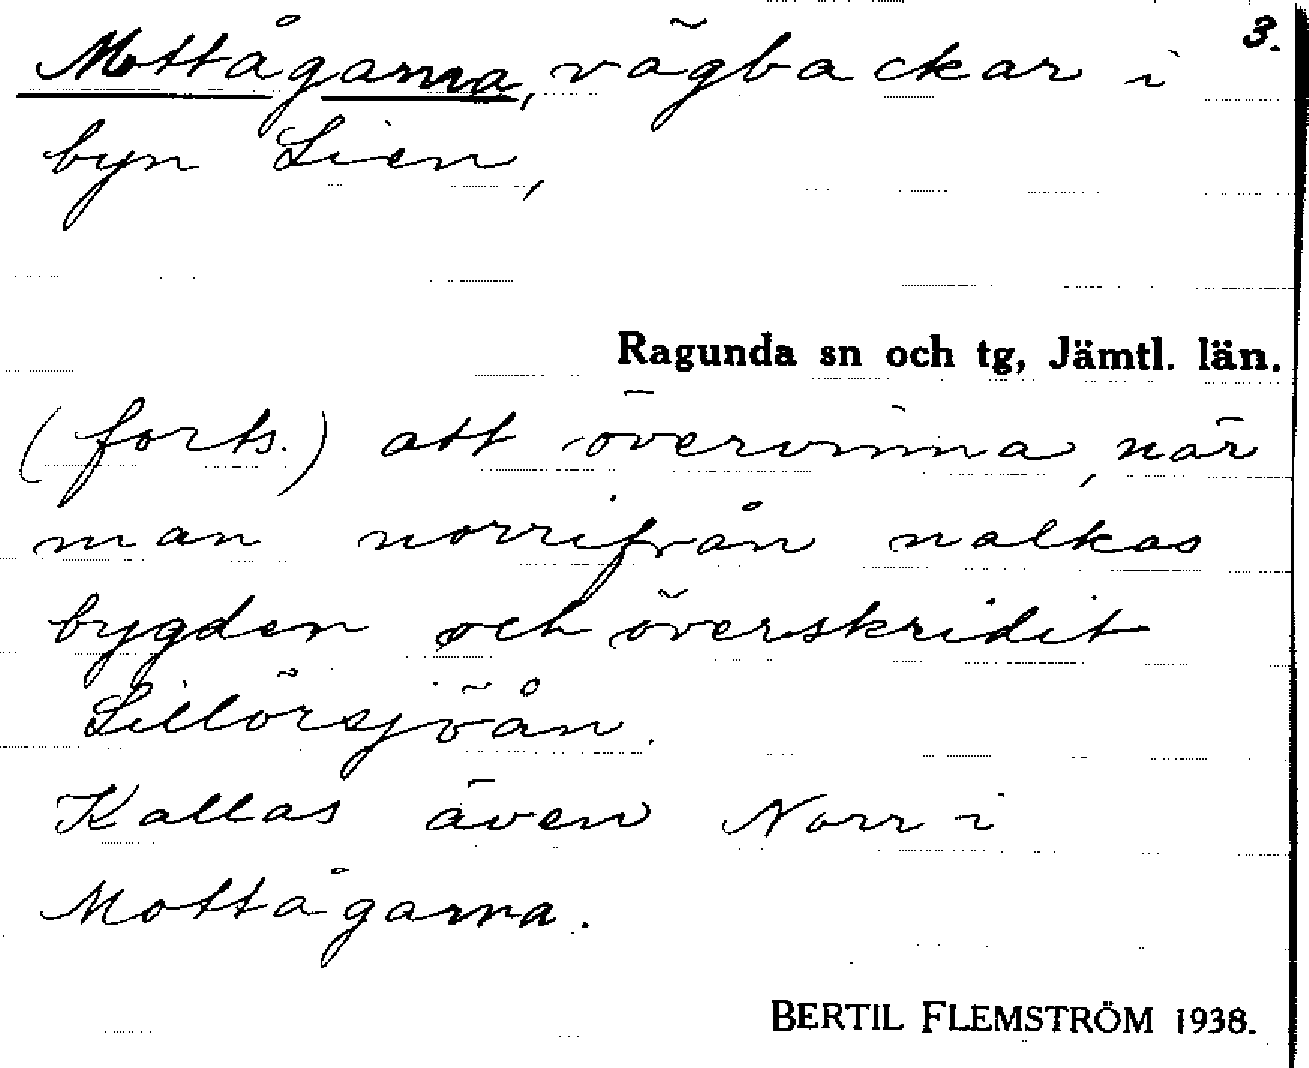 3.
Mottågarna, vägbackar i
byn Lien,
Ragunda sn och tg, Jämtl. län.
(forts.) att övervinna, när
man norrifrån nalkas
bygden och överskridit
Lillörsjöån.
Kallas även Norr i
Mottågarna.
BERTIL FLEMSTRÖM 1938.